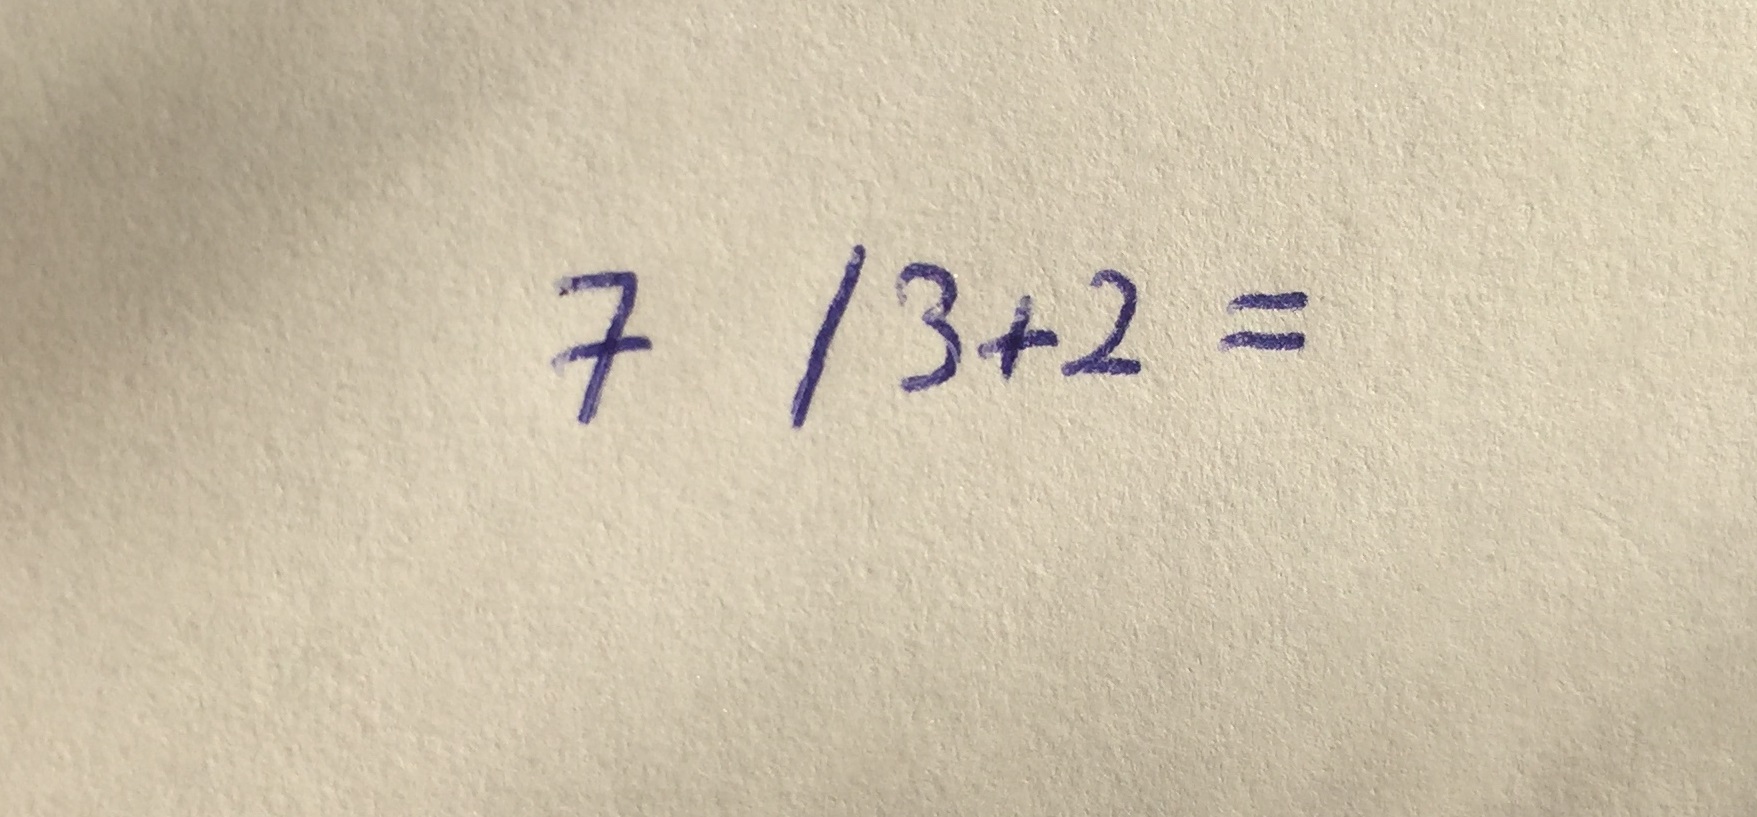 7 / 3+2 =